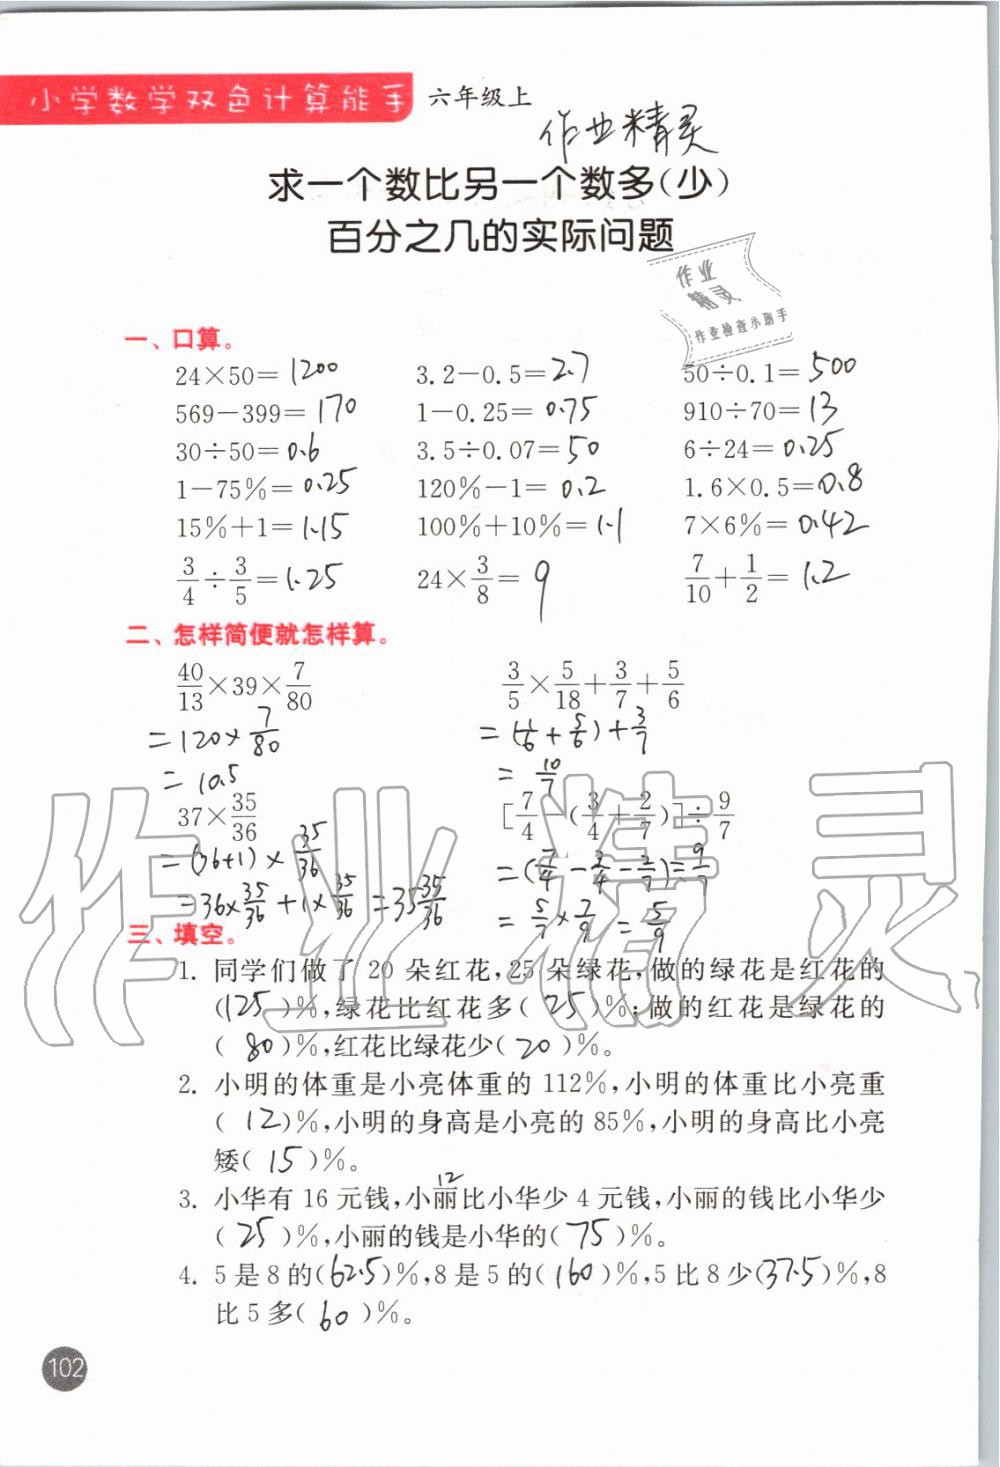 小学数学双色计算能手 六年级上
作业精灵
求一个数比另一个数多(少)
百分之几的实际问题
作业
精灵
作业检查小助手
一、口算。
24×50=1200 3.2-0.5=2.7 50÷0.1=500
569-399=170 1-0.25=0.75 910÷70=13
30÷50=0.6 3.5÷0.07=50 6÷24=0.25
1-75%=0.25 120%-1=0.2 1.6×0.5=0.8
15%+1=1.15 100%+10%=1.1 7×6%=0.42
3/4÷3/5=1.25 24×3/8=9 7/10+1/2=1.2
二、怎样简便就怎样算。
40/13×39×7/80 3/5×5/18+3/7+5/6
=120×7/80 =(1/6+5/6)+3/7
=10.5 =10/7
37×35/36 [7/4-(3/4+2/7)]÷9/7
=(36+1)×35/36 =(7/4-3/4-2/7)÷9/7
=36×35/36+1×35/36=35 35/36 =5/7×7/9=5/9
三、填空。
1. 同学们做了20朵红花,25朵绿花,做的绿花是红花的
(125)%,绿花比红花多(25)%;做的红花是绿花的
(80)%,红花比绿花少(20)%。
2. 小明的体重是小亮体重的112%,小明的体重比小亮重
(12)%,小明的身高是小亮的85%,小明的身高比小亮
矮(15)%。
12
3. 小华有16元钱,小丽比小华少4元钱,小丽的钱比小华少
(25)%,小丽的钱是小华的(75)%。
4. 5是8的(62.5)%,8是5的(160)%,5比8少(37.5)%,8
比5多(60)%。
102
作业精灵